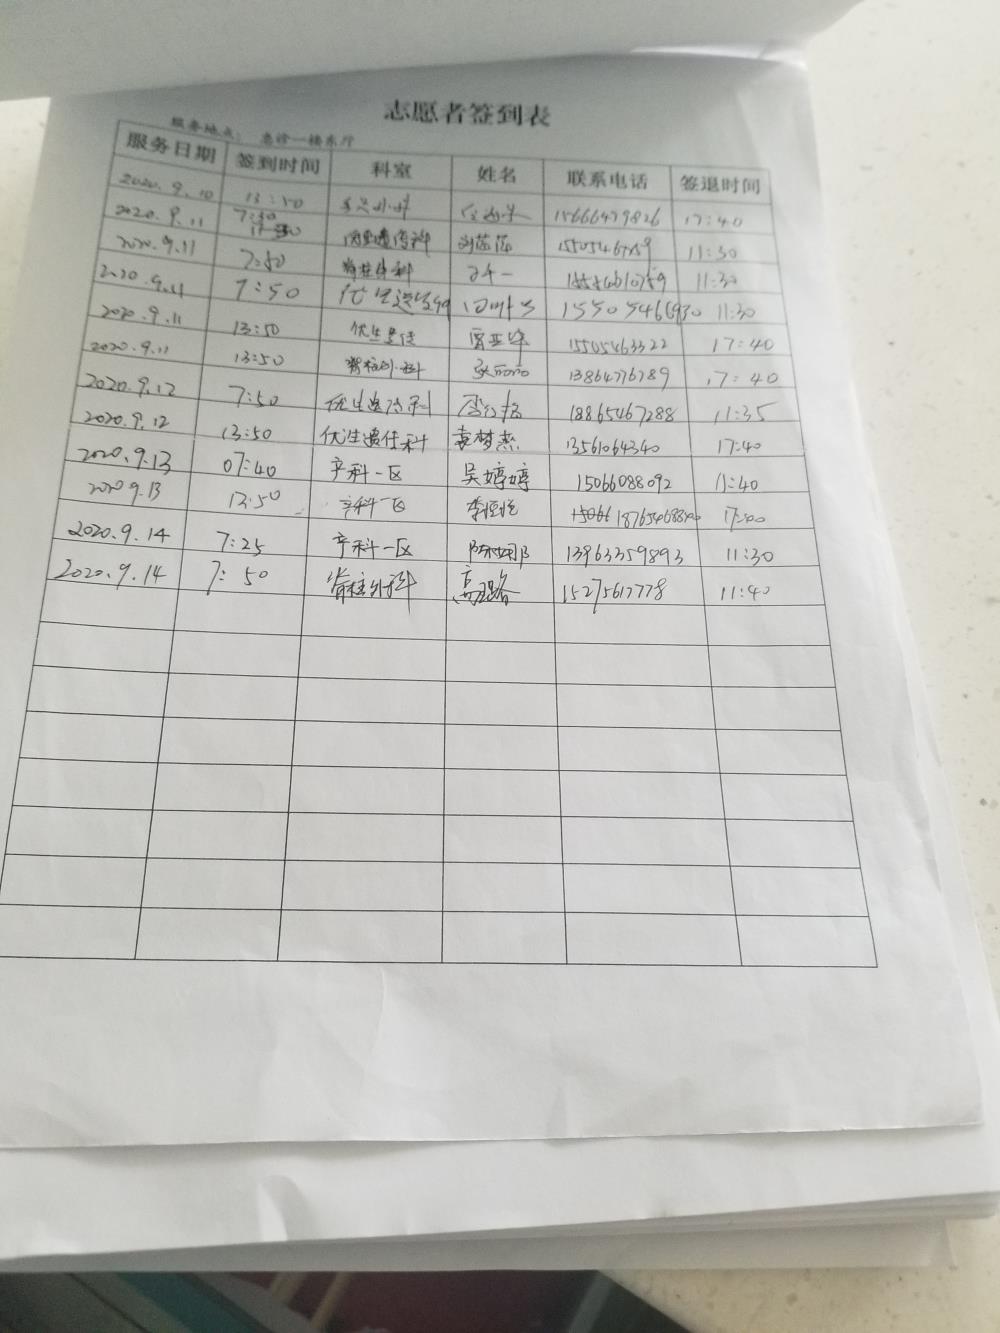 志愿者签到表
服务地点： 急诊一楼东厅
服务日期 签到时间 科室 姓名 联系电话 签退时间
2020.9.10 13:50 15666479826 17:40
2020.9.11 7:30 刘蕊蕊 11:30
2020.9.11 7:50 脊柱外科 11:30
2020.9.11 7:50 15505466930 11:30
2020.9.11 13:50 优生遗传 15505463322 17:40
2020.9.11 13:50 脊柱外科 13864776789 17:40
2020.9.12 7:50 优生遗传科 18865467288 11:35
2020.9.12 13:50 优生遗传科 袁梦杰 13561064340 17:40
2020.9.13 07:40 产科一区 吴婷婷 15066088092 11:40
2020 9.13 13:50 产科一区 17:00
2020.9.14 7:25 产科一区 陈娜 13963359893 11:30
2020.9.14 7:50 脊柱外科 高璐 15275617778 11:40